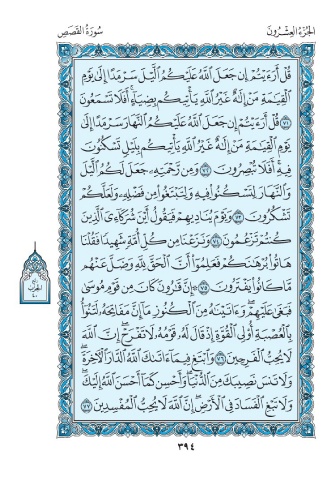 الجزء العشرون
سورة القصص
قُلْ أَرَءَيْتُمْ إِن جَعَلَ اللَّهُ عَلَيْكُمُ الَّيْلَ سَرْمَدًا إِلَىٰ يَوْمِ
الْقِيَٰمَةِ مَنْ إِلَٰهٌ غَيْرُ اللَّهِ يَأْتِيكُم بِضِيَآءٍ ۖ أَفَلَا تَسْمَعُونَ
٧١ قُلْ أَرَءَيْتُمْ إِن جَعَلَ اللَّهُ عَلَيْكُمُ النَّهَارَ سَرْمَدًا إِلَىٰ
يَوْمِ الْقِيَٰمَةِ مَنْ إِلَٰهٌ غَيْرُ اللَّهِ يَأْتِيكُم بِلَيْلٍ تَسْكُنُونَ
فِيهِ ۖ أَفَلَا تُبْصِرُونَ ٧٢ وَمِن رَّحْمَتِهِ جَعَلَ لَكُمُ الَّيْلَ
وَالنَّهَارَ لِتَسْكُنُوا فِيهِ وَلِتَبْتَغُوا مِن فَضْلِهِ وَلَعَلَّكُمْ
تَشْكُرُونَ ٧٣ وَيَوْمَ يُنَادِيهِمْ فَيَقُولُ أَيْنَ شُرَكَآءِيَ الَّذِينَ
كُنتُمْ تَزْعُمُونَ ٧٤ وَنَزَعْنَا مِن كُلِّ أُمَّةٍ شَهِيدًا فَقُلْنَا
هَاتُوا بُرْهَٰنَكُمْ فَعَلِمُوا أَنَّ الْحَقَّ لِلَّهِ وَضَلَّ عَنْهُم
مَّا كَانُوا يَفْتَرُونَ ٧٥ ۞ إِنَّ قَٰرُونَ كَانَ مِن قَوْمِ مُوسَىٰ
فَبَغَىٰ عَلَيْهِمْ ۖ وَءَاتَيْنَٰهُ مِنَ الْكُنُوزِ مَآ إِنَّ مَفَاتِحَهُ لَتَنُوٓأُ
بِالْعُصْبَةِ أُولِي الْقُوَّةِ إِذْ قَالَ لَهُ قَوْمُهُ لَا تَفْرَحْ ۖ إِنَّ اللَّهَ
لَا يُحِبُّ الْفَرِحِينَ ٧٦ وَابْتَغِ فِيمَآ ءَاتَىٰكَ اللَّهُ الدَّارَ الْءَاخِرَةَ ۖ
وَلَا تَنسَ نَصِيبَكَ مِنَ الدُّنْيَا ۖ وَأَحْسِن كَمَآ أَحْسَنَ اللَّهُ إِلَيْكَ ۖ
وَلَا تَبْغِ الْفَسَادَ فِي الْأَرْضِ ۖ إِنَّ اللَّهَ لَا يُحِبُّ الْمُفْسِدِينَ ٧٧
الحزب
٤٠
٣٩٤